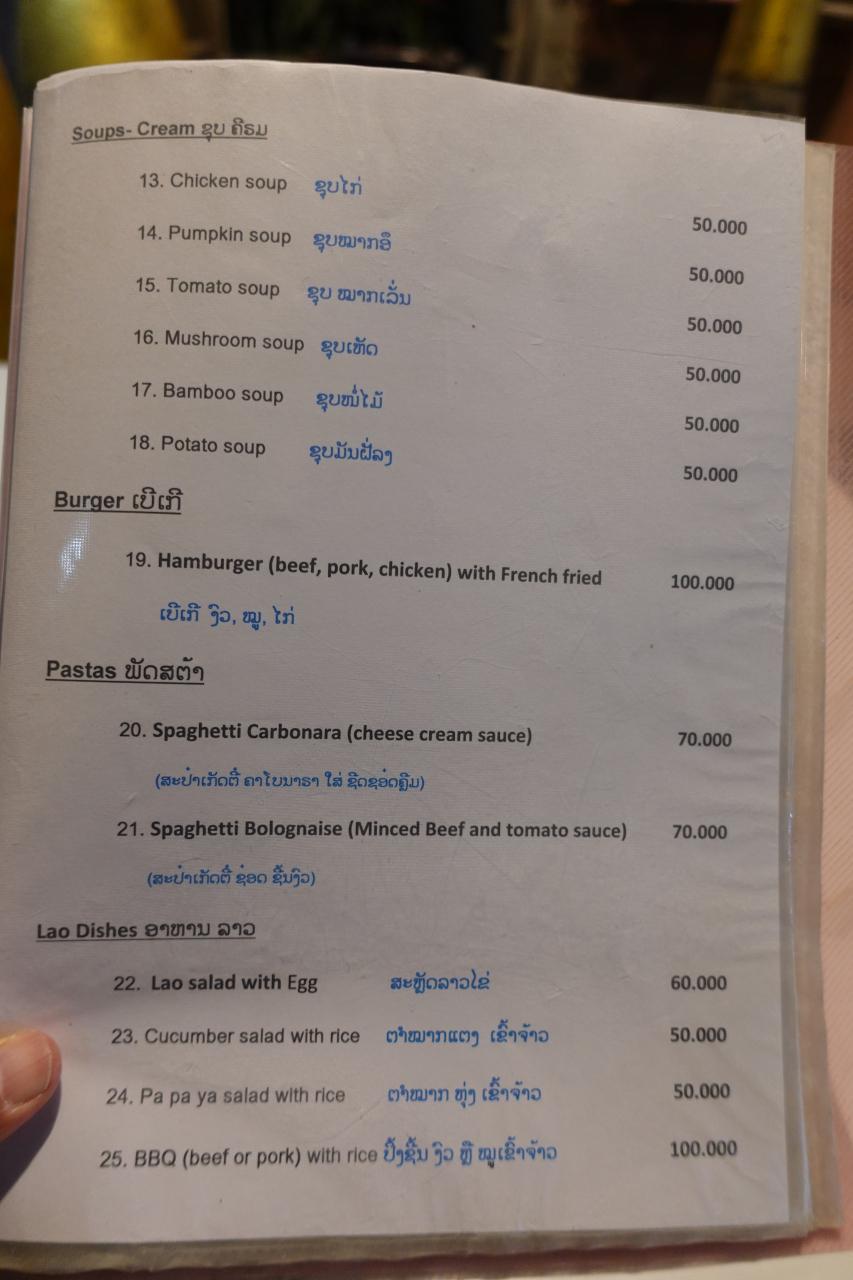 Soups- Cream ຊຸບ ຄີຣມ
13. Chicken soup ຊຸບໄກ່ 50.000
14. Pumpkin soup ຊຸບໝາກອຶ 50.000
15. Tomato soup ຊຸບ ໝາກເລັ່ນ 50.000
16. Mushroom soup ຊຸບເຫັດ 50.000
17. Bamboo soup ຊຸບໜໍ່ໄມ້ 50.000
18. Potato soup ຊຸບມັນຝັ່ລງ 50.000
Burger ເບີເກີ
19. Hamburger (beef, pork, chicken) with French fried 100.000
ເບີເກີ ງົວ, ໝູ, ໄກ່
Pastas ພັດສຕ້າ
20. Spaghetti Carbonara (cheese cream sauce) 70.000
(ສະປາເກັດຕີ້ ຄາໂບນາຣາ ໃສ່ ຊີດຊອ໋ດຄຼີມ)
21. Spaghetti Bolognaise (Minced Beef and tomato sauce) 70.000
(ສະປາເກັດຕີ້ ຊ໋ອດ ຊີ້ນງົວ)
Lao Dishes ອາຫານ ລາວ
22. Lao salad with Egg ສະຫຼັດລາວໄຂ່ 60.000
23. Cucumber salad with rice ຕຳໝາກແຕງ ເຂົ້າຈ້າວ 50.000
24. Pa pa ya salad with rice ຕຳໝາກ ຫຸ່ງ ເຂົ້າຈ້າວ 50.000
25. BBQ (beef or pork) with rice ປີ້ງຊີ້ນ ງົວ ຫຼື ໝູເຂົ້າຈ້າວ 100.000